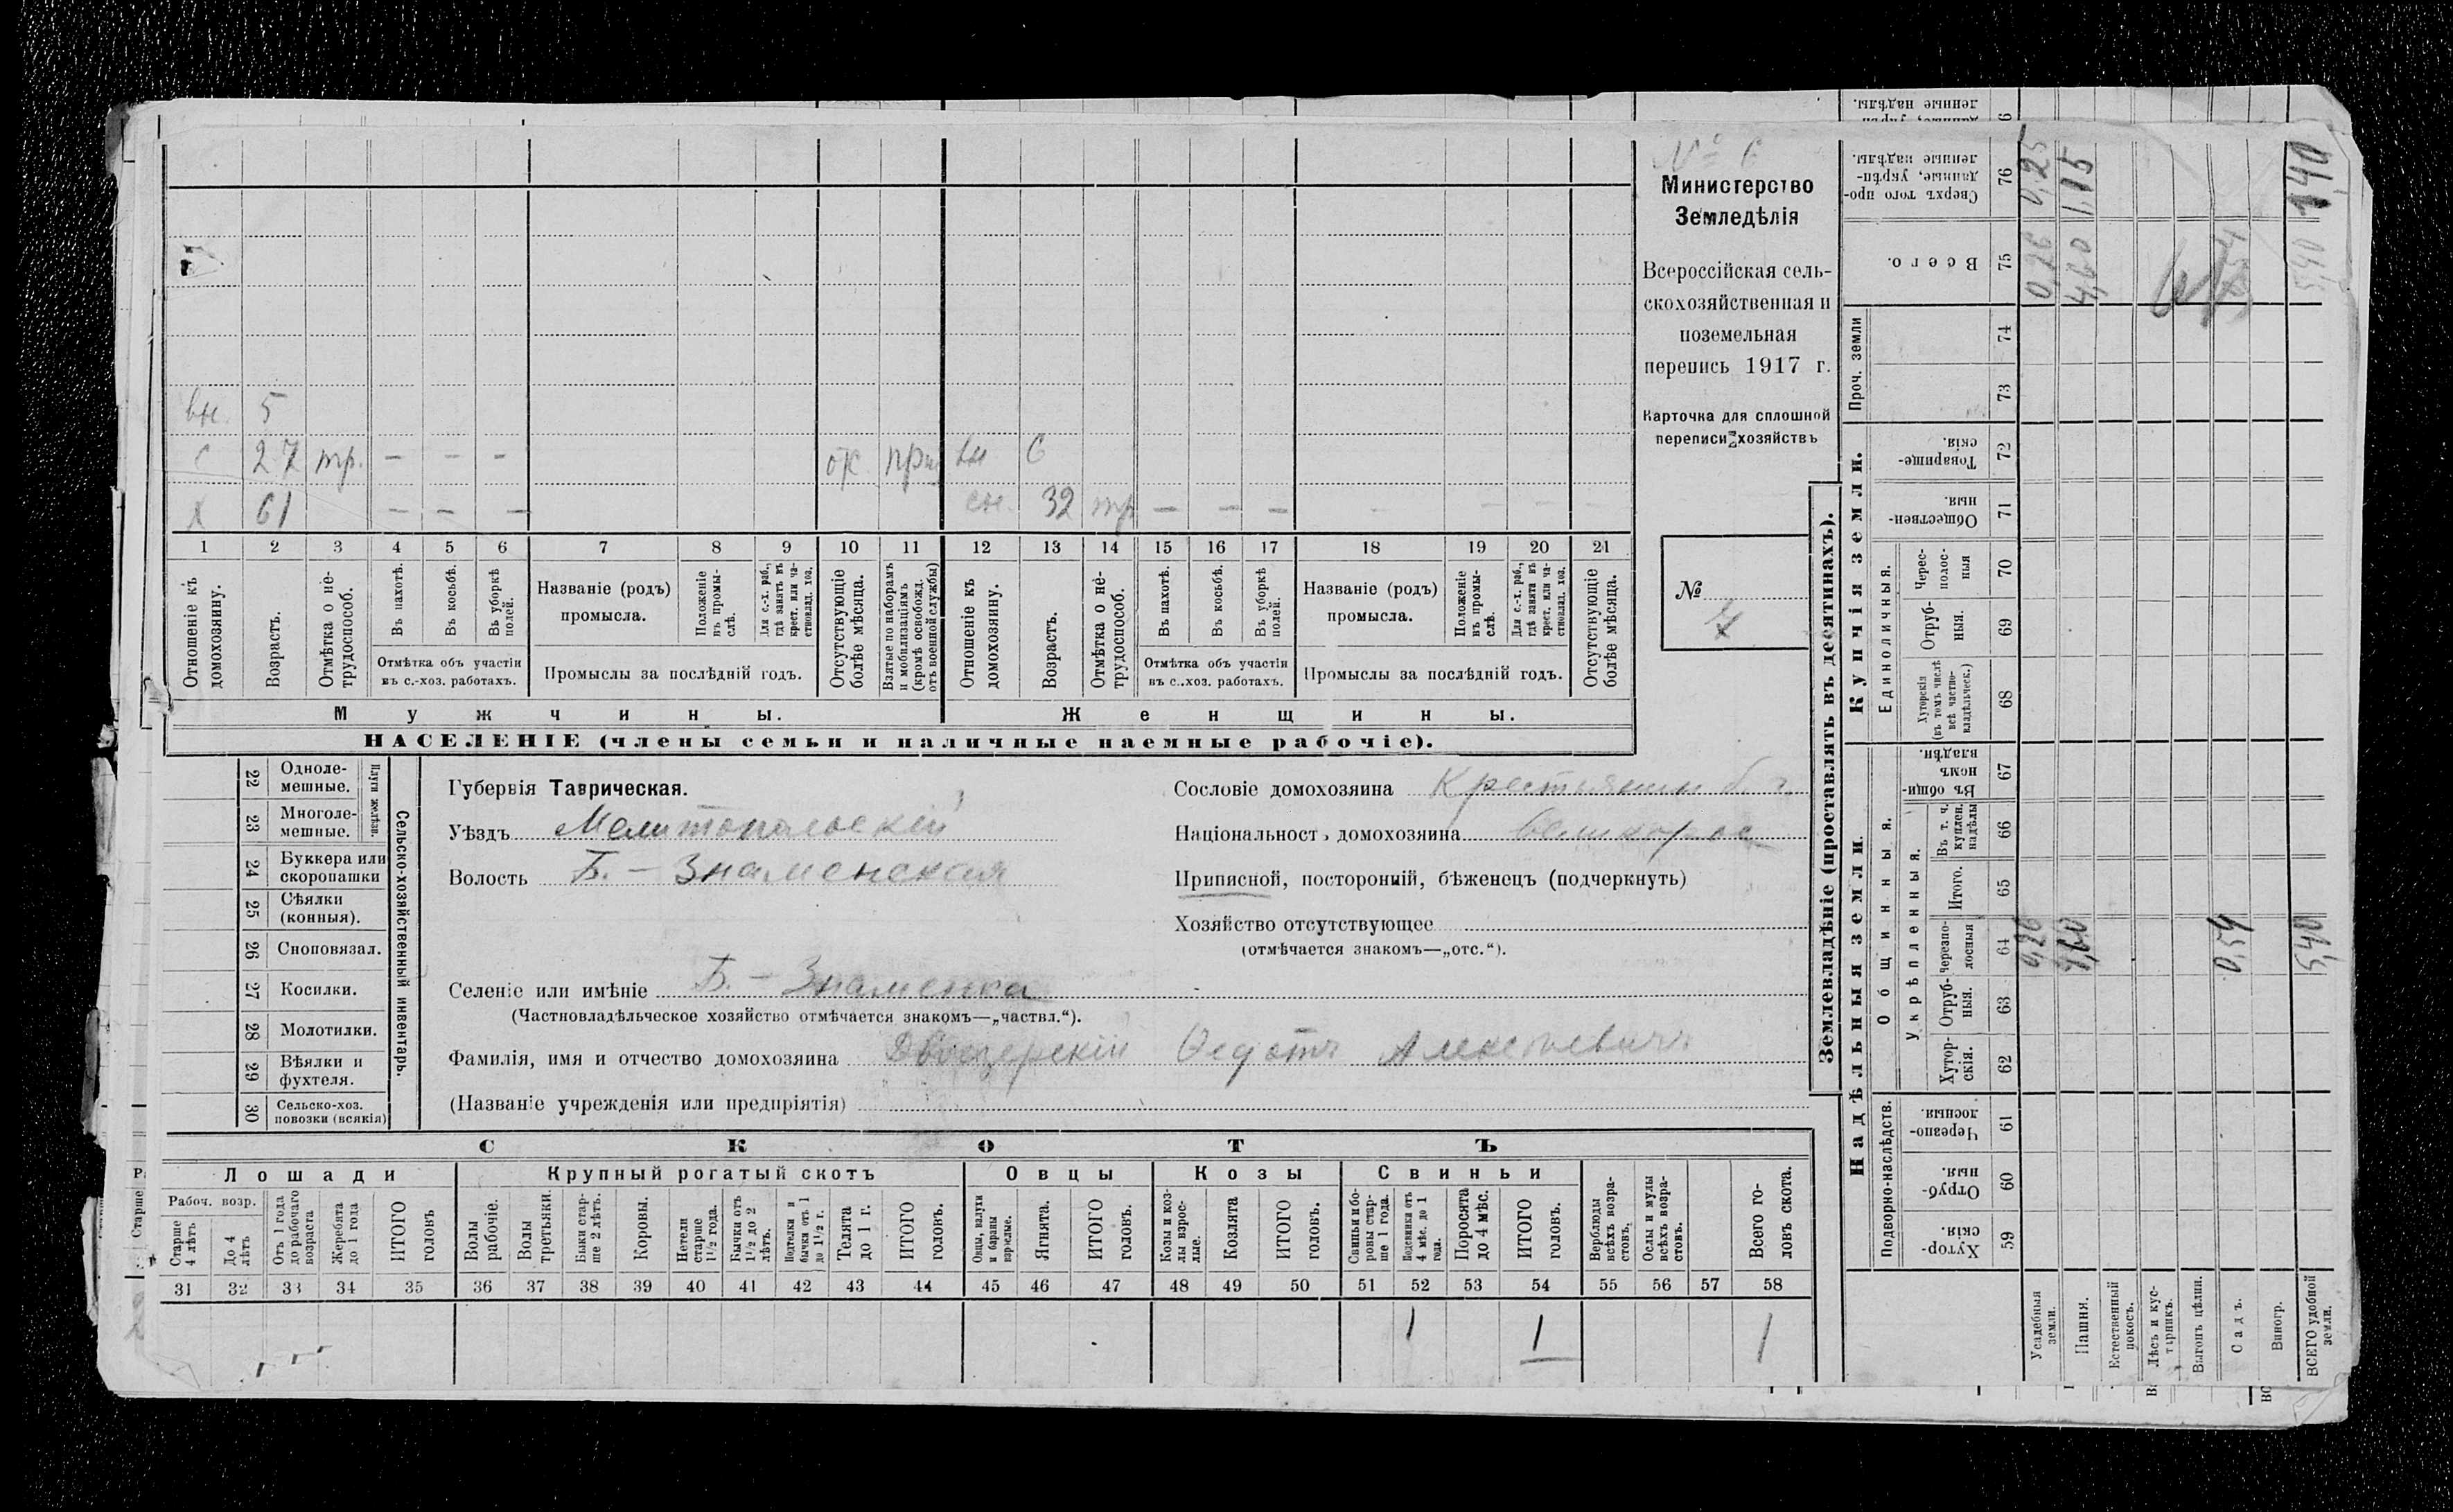 № 6
Министерство
Земледѣлія
Всероссійская сель-
скохозяйственная и
поземельная
перепись 1917 г.
Карточка для сплошной
переписи хозяйствъ
№
вн. 5
с 27 тр. — — — вн 6
х 61 — — — 32 тр — — —
1 2 3 4 5 6 7 8 9 10 11 12 13 14 15 16 17 18 19 20 21
Отношеніе къ домохозяину.
Возрастъ.
Отмѣтка о не-трудоспособ.
Въ пахотѣ.
Въ косьбѣ.
Въ уборкѣ полей.
Отмѣтка объ участіи
въ с.-хоз. работахъ.
Названіе (родъ)
промысла.
Положеніе въ промы-слѣ.
Для с.-х. раб., гдѣ занятъ въ крест. или ча-стновлад. хоз.
Промыслы за послѣдній годъ.
Отсутствующіе болѣе мѣсяца.
Взятые по наборамъ и мобилизаціямъ (кромѣ освобожд. отъ военной службы)
Отношеніе къ домохозяину.
Возрастъ.
Отмѣтка о не-трудоспособ.
Въ пахотѣ.
Въ косьбѣ.
Въ уборкѣ полей.
Отмѣтка объ участіи
въ с.-хоз. работахъ.
Названіе (родъ)
промысла.
Положеніе въ промы-слѣ.
Для с.-х. раб., гдѣ занята въ крест. или ча-стновлад. хоз.
Промыслы за послѣдній годъ.
Отсутствующіе болѣе мѣсяца.
Мужчины.
Женщины.
НАСЕЛЕНІЕ (члены семьи и наличные наемные рабочіе).
22 Одноле-мешные.
23 Многоле-мешные.
Плуги желѣзн.
24 Буккера или скоропашки
25 Сѣялки (конныя).
26 Сноповязал.
27 Косилки.
28 Молотилки.
29 Вѣялки и фухтеля.
30 Сельско-хоз. повозки (всякія)
Сельско-хозяйственный инвентарь.
Губернія Таврическая.
Уѣздъ Мелитопольскій
Волость Б. - Знаменская
Селеніе или имѣніе Б. - Знаменка
(Частновладѣльческое хозяйство отмѣчается знакомъ—„частвл.“).
Фамилія, имя и отчество домохозяина Двоезерскій Федотъ Алексѣевичъ
(Названіе учрежденія или предпріятія)
Сословіе домохозяина Крестьянин
Національность домохозяина великорос
Приписной, посторонній, бѣженецъ (подчеркнуть)
Хозяйство отсутствующее
(отмѣчается знакомъ—„отс.“).
СКОТЪ
Лошади
Крупный рогатый скотъ
Овцы
Козы
Свиньи
Рабоч. возр.
Старше 4 лѣтъ
До 4 лѣтъ
Отъ 1 года до рабочаго возраста
Жеребята до 1 года
ИТОГО головъ
Волы рабочіе.
Волы третьяки.
Быки стар-ше 2 лѣтъ.
Коровы.
Нетели старше 1½ года.
Бычки отъ 1½ до 2 лѣтъ.
Подтелки и бычки отъ 1 до 1½ г.
Телята до 1 г.
ИТОГО головъ.
Овцы, валухи и бараны взрослые.
Ягнята.
ИТОГО головъ.
Козы и коз-лы взрос-лые.
Козлята
ИТОГО головъ.
Свиньи и бо-ровы стар-ше 1 года.
Подсвинки отъ 4 мѣс. до 1 года.
Поросята до 4 мѣс.
ИТОГО головъ.
Верблюды всѣхъ возра-стовъ.
Ослы и мулы всѣхъ возра-стовъ.
Всего го-ловъ скота.
31 32 33 34 35 36 37 38 39 40 41 42 43 44 45 46 47 48 49 50 51 52 53 54 55 56 57 58
1 1 1
Землевладѣніе (проставлять въ десятинахъ).
Надѣльныя земли.
Купчія земли.
Проч. земли
Подворно-наслѣдств.
Общинныя.
Укрѣпленныя.
Единоличныя.
Хутор-скія. 59
Отруб-ныя. 60
Черезпо-лосныя. 61
Хутор-скія. 62
Отруб-ныя. 63
Черезпо-лосныя 64
Итого. 65
Въ т. ч. куплен. надѣлы 66
Въ общин-номъ владѣн. 67
Хуторскія (въ томъ числѣ всѣ частно-владѣльческ.) 68
Отруб-ныя. 69
Черес-полос-ныя 70
Обществен-ныя. 71
Товарище-скія. 72
73
74
Всего. 75
Сверхъ того про-данные, укрѣп-ленные надѣлы. 76
Усадебныя земли. 0,26 0,26 0,25
Пашня. 4,60 4,60 1,15
Естественный покосъ.
Лѣсъ и кус-тарникъ.
Выгонъ цѣлин.
Садъ. 0,54
Виногр.
ВСЕГО удобной земли. 5,40 5,40 1,40